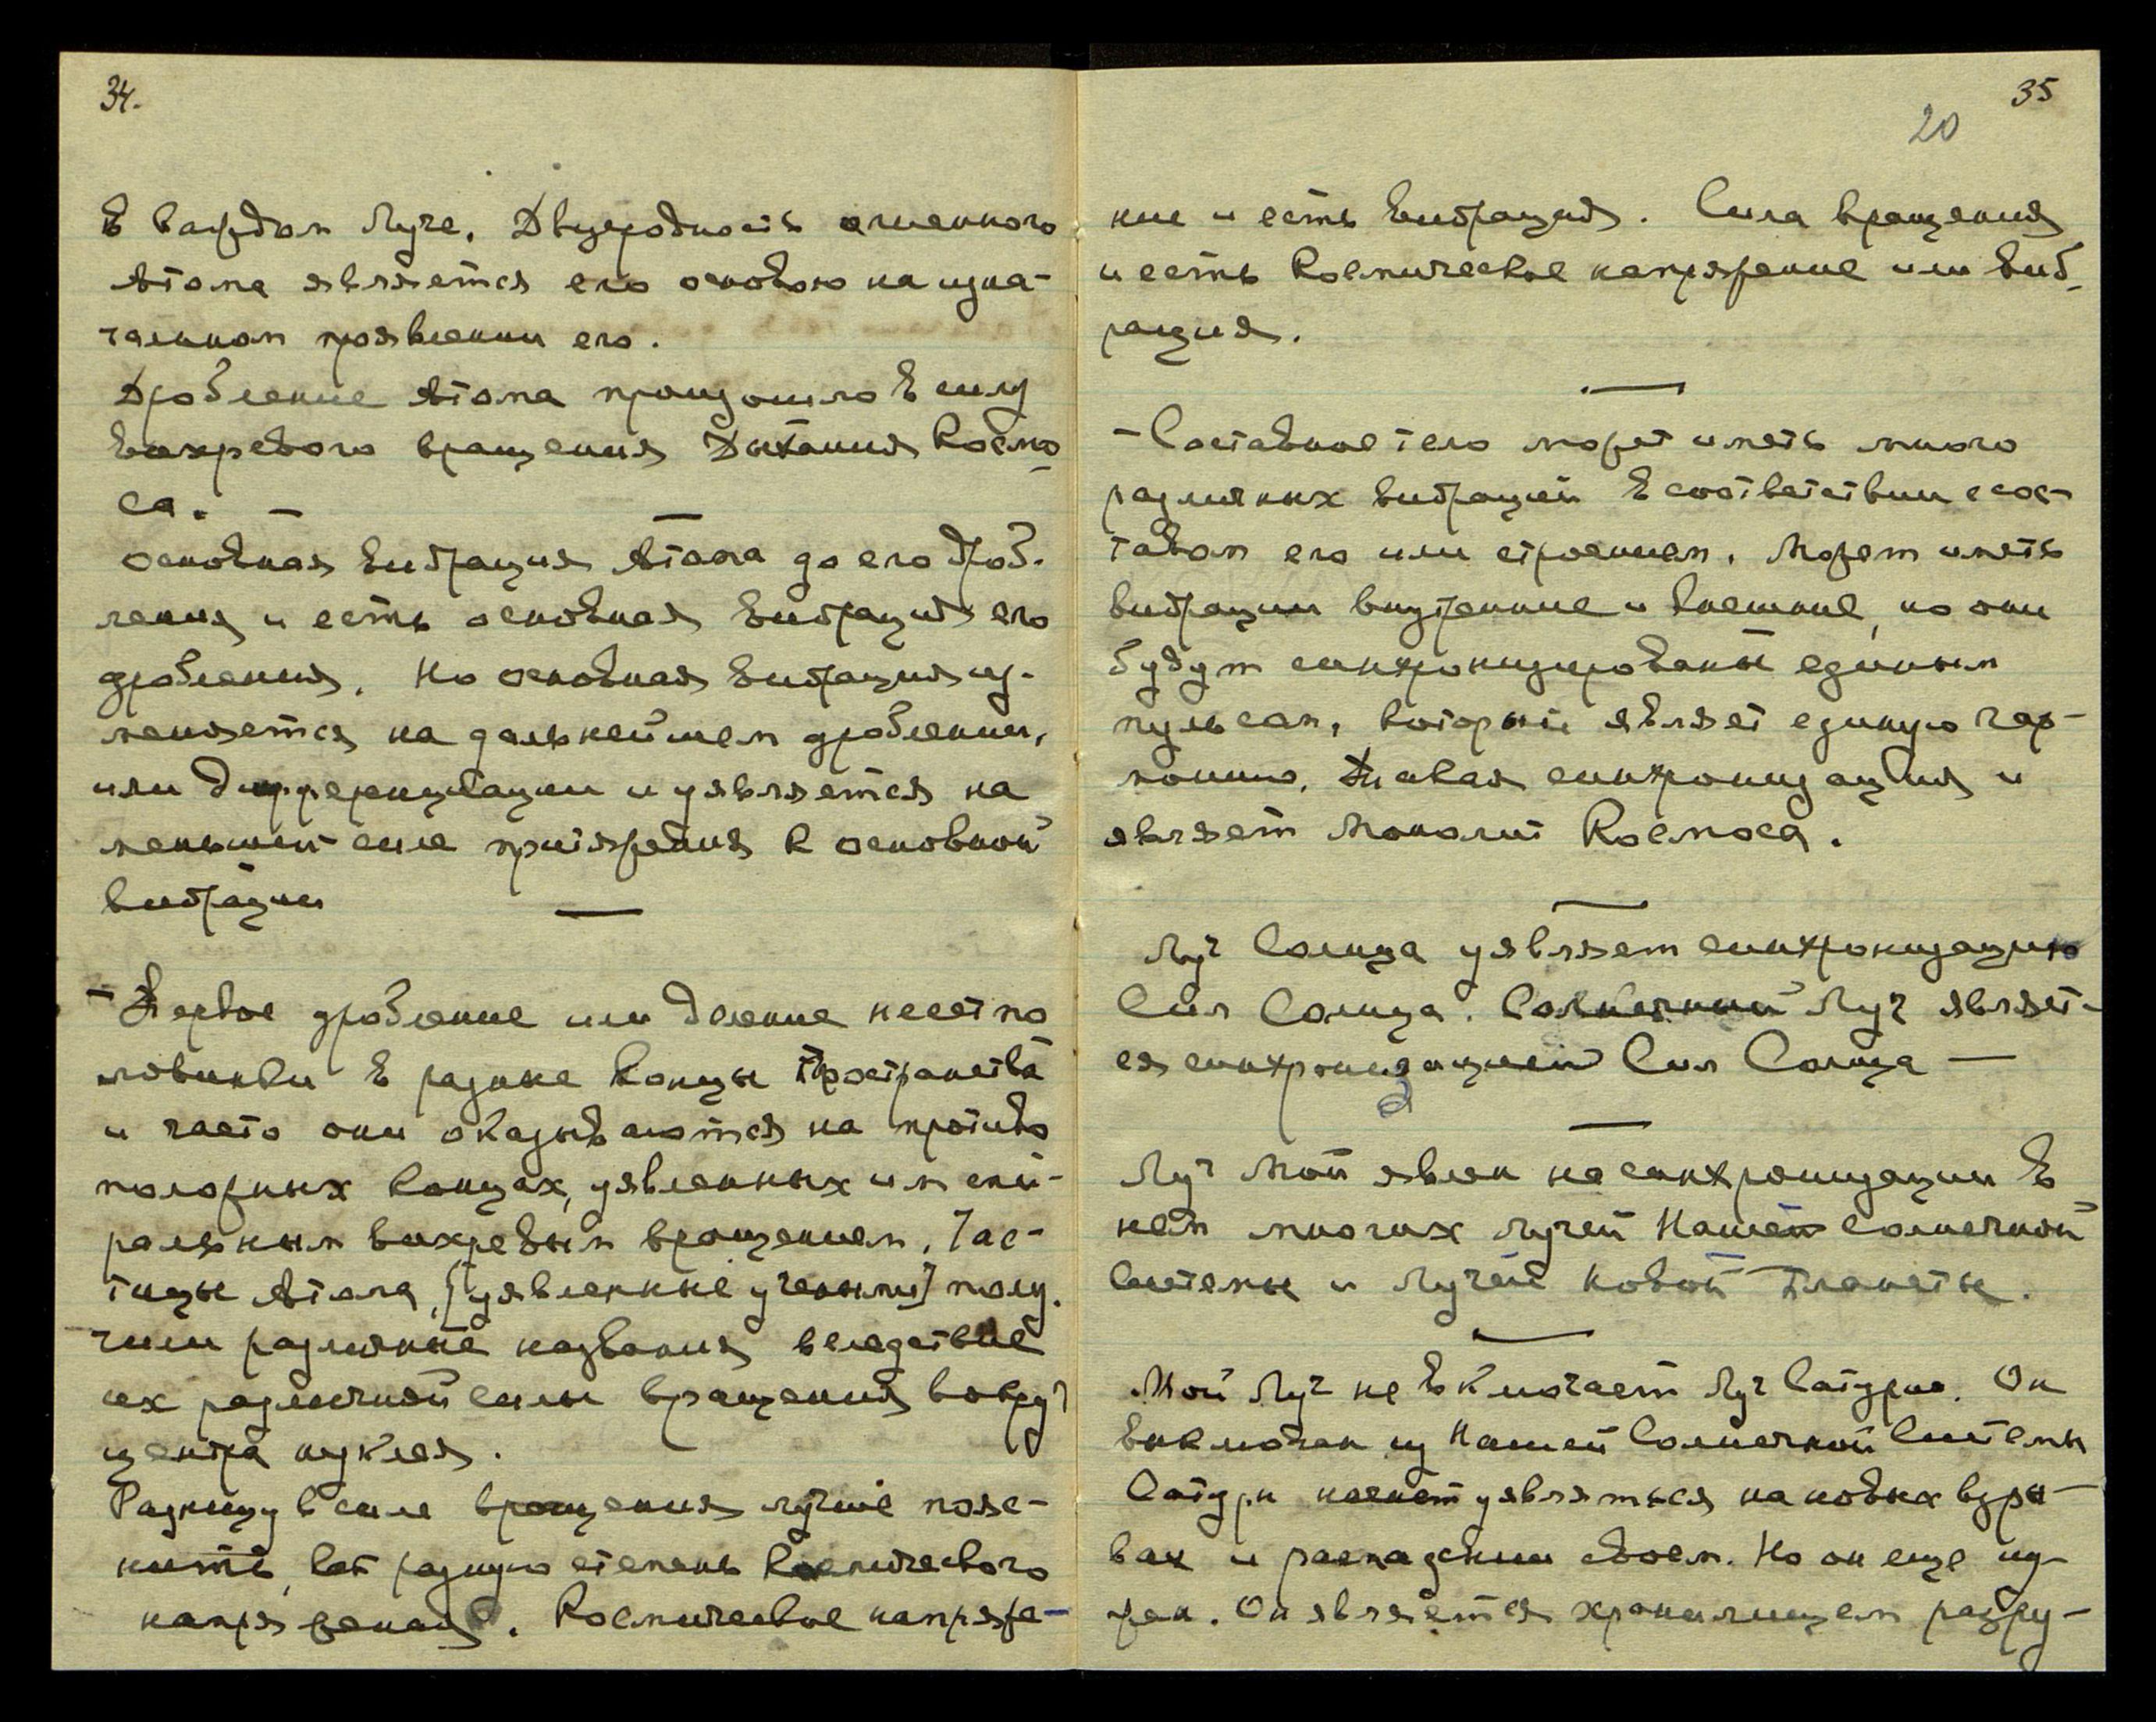 34.
в каждом Луче. Двуродность огненного
Атома является его основою на изна-
чальном проявлении его.
Дробление Атома произошло в силу
вихревого вращения Дыхания Космо-
са. —
Основная вибрация Атома до его дроб-
ления и есть основная вибрация его
дробления. Но основная вибрация из-
меняется на дальнейшем дроблении,
или дифференциации и уявляется на
меньшей силе притяжения к основной
вибрации
— Первое дробление или деление несет по
ловинки в разные концы Пространства
и часто они оказываются на противо
положных концах, уявленных им спи-
ральным вихревым вращением. Час-
тицы Атома, [уявленные учеными] полу-
чили различные названия вследствие
их различной силы вращения вокруг
центра нуклея.
Разницу в силе вращения лучше пояс-
нить, как разную степень космического
напряжения. Космическое напряже-
35
20
ние и есть вибрация. Сила вращения
и есть Космическое напряжение или виб-
рация.
— Составное тело может иметь много
различных вибраций в соответствии с сос-
тавом его или строением. Может иметь
вибрации внутренние и внешние, но они
будут синхронизированы единым
пульсом, который являет единую гар-
монию. Такая синхронизация и
являет Монолит Космоса.
Луч Солнца уявляет синхронизацию
Сил Солнца. Солнечный Луч являет-
ся синхронизацией Сил Солнца —
Луч Мой явлен на синхронизации в
нем многих лучей Нашей солнечной
Системы и Лучей новой Планеты.
Мой Луч не включает Луч Сатурна. Он
выключен из Нашей Солнечной Системы
Сатурн начнет уявляться на новых взры-
вах и распадении своем. Но он еще ну-
жен. Он является хранилищем разру-